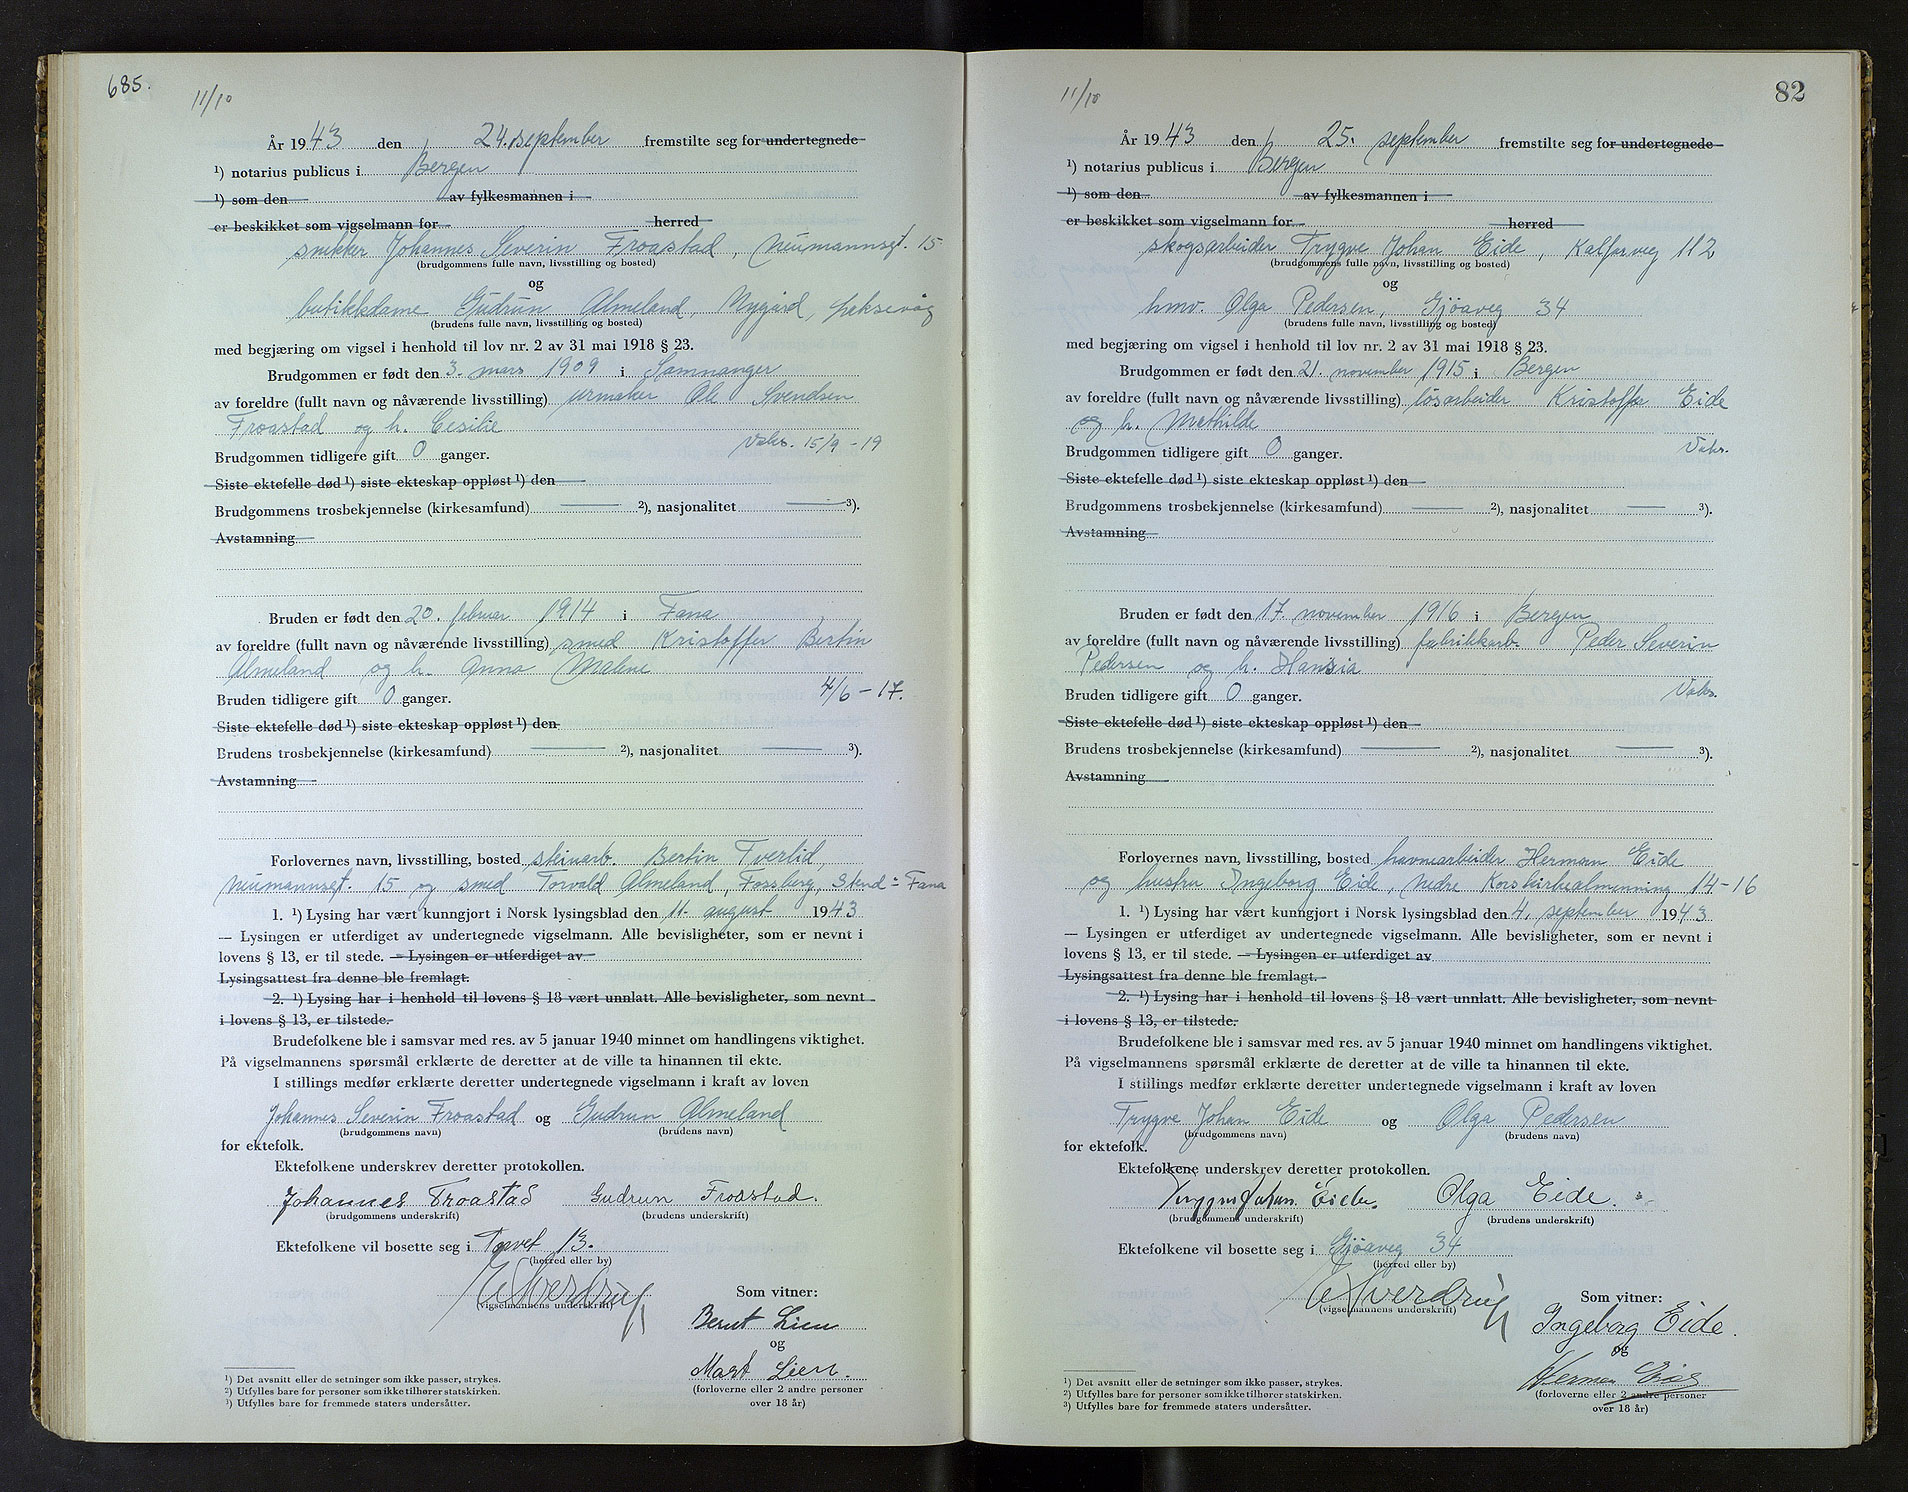 685.
11/10
År 1943 den 24. september fremstilte seg for undertegnede
¹) notarius publicus i Bergen
¹) som den av fylkesmannen i
er beskikket som vigselmann for herred
snikker Johannes Severin Froastad, Neumannsgt. 15
(brudgommens fulle navn, livsstilling og bosted)
og
butikkdame Gudrun Almeland, Nygård, Laksevåg
(brudens fulle navn, livsstilling og bosted)
med begjæring om vigsel i henhold til lov nr. 2 av 31 mai 1918 § 23.
Brudgommen er født den 3. mars 1909 i Samnanger
av foreldre (fullt navn og nåværende livsstilling) urmaker Ole Svendsen
Froastad og h. Cesilie
Vaks. 15/9 - 19
Brudgommen tidligere gift 0 ganger.
Siste ektefelle død ¹) siste ekteskap oppløst ¹) den
Brudgommens trosbekjennelse (kirkesamfund) — ²), nasjonalitet — ³).
Avstamning
Bruden er født den 20. februar 1914 i Fana
av foreldre (fullt navn og nåværende livsstilling) smed Kristoffer Bertin
Almeland og h. Anna Malene
Bruden tidligere gift 0 ganger. 4/6 - 17.
Siste ektefelle død ¹) siste ekteskap oppløst ¹) den
Brudens trosbekjennelse (kirkesamfund) — ²), nasjonalitet — ³).
Avstamning
Forlovernes navn, livsstilling, bosted steinarb. Bertin Tverlid,
Neumannsgt. 15 og smed Torvald Almeland, Fossberg, Stend - Fana
1. ¹) Lysing har vært kunngjort i Norsk lysingsblad den 11. august 1943
— Lysingen er utferdiget av undertegnede vigselmann. Alle bevisligheter, som er nevnt i
lovens § 13, er til stede. — Lysingen er utferdiget av
Lysingsattest fra denne ble fremlagt.
2. ¹) Lysing har i henhold til lovens § 18 vært unnlatt. Alle bevisligheter, som nevnt
i lovens § 13, er tilstede.
Brudefolkene ble i samsvar med res. av 5 januar 1940 minnet om handlingens viktighet.
På vigselmannens spørsmål erklærte de deretter at de ville ta hinannen til ekte.
I stillings medfør erklærte deretter undertegnede vigselmann i kraft av loven
Johannes Severin Froastad og Gudrun Almeland
(brudgommens navn) (brudens navn)
for ektefolk.
Ektefolkene underskrev deretter protokollen.
Johannes Froastad Gudrun Froastad.
(brudgommens underskrift) (brudens underskrift)
Ektefolkene vil bosette seg i Torvet 13.
(herred eller by)
Sverdrup
(vigselmannens underskrift)
Som vitner:
Bernt Lien
og
Mart Lien.
(forloverne eller 2 andre personer
over 18 år)
¹) Det avsnitt eller de setninger som ikke passer, strykes.
²) Utfylles bare for personer som ikke tilhører statskirken.
³) Utfylles bare for fremmede staters undersåtter.
11/10
82
År 1943 den 25. september fremstilte seg for undertegnede
¹) notarius publicus i Bergen
¹) som den av fylkesmannen i
er beskikket som vigselmann for herred
skogsarbeider Trygve Johan Eide, Kalfarveg 112
(brudgommens fulle navn, livsstilling og bosted)
og
hmv. Olga Pedersen, Gjöaveg 34
(brudens fulle navn, livsstilling og bosted)
med begjæring om vigsel i henhold til lov nr. 2 av 31 mai 1918 § 23.
Brudgommen er født den 21. november 1915 i Bergen
av foreldre (fullt navn og nåværende livsstilling) løsarbeider Kristoffer Eide
og h. Mathilde
Vaks.
Brudgommen tidligere gift 0 ganger.
Siste ektefelle død ¹) siste ekteskap oppløst ¹) den
Brudgommens trosbekjennelse (kirkesamfund) — ²), nasjonalitet — ³).
Avstamning
Bruden er født den 17. november 1916 i Bergen
av foreldre (fullt navn og nåværende livsstilling) fabrikkarb. Peder Severin
Pedersen og h. Hansia
Bruden tidligere gift 0 ganger. Vaks.
Siste ektefelle død ¹) siste ekteskap oppløst ¹) den
Brudens trosbekjennelse (kirkesamfund) — ²), nasjonalitet — ³).
Avstamning
Forlovernes navn, livsstilling, bosted havnearbeider Herman Eide
og hustru Ingeborg Eide, nedre Korskirkealmenning 14-16
1. ¹) Lysing har vært kunngjort i Norsk lysingsblad den 4. september 1943
— Lysingen er utferdiget av undertegnede vigselmann. Alle bevisligheter, som er nevnt i
lovens § 13, er til stede. — Lysingen er utferdiget av
Lysingsattest fra denne ble fremlagt.
2. ¹) Lysing har i henhold til lovens § 18 vært unnlatt. Alle bevisligheter, som nevnt
i lovens § 13, er tilstede.
Brudefolkene ble i samsvar med res. av 5 januar 1940 minnet om handlingens viktighet.
På vigselmannens spørsmål erklærte de deretter at de ville ta hinannen til ekte.
I stillings medfør erklærte deretter undertegnede vigselmann i kraft av loven
Trygve Johan Eide og Olga Pedersen
(brudgommens navn) (brudens navn)
for ektefolk.
Ektefolkene underskrev deretter protokollen.
Trygve Johan Eide. Olga Eide.
(brudgommens underskrift) (brudens underskrift)
Ektefolkene vil bosette seg i Gjöaveg 34
(herred eller by)
Sverdrup
(vigselmannens underskrift)
Som vitner:
Ingeborg Eide.
og
Herman Eide
(forloverne eller 2 andre personer
over 18 år)
¹) Det avsnitt eller de setninger som ikke passer, strykes.
²) Utfylles bare for personer som ikke tilhører statskirken.
³) Utfylles bare for fremmede staters undersåtter.